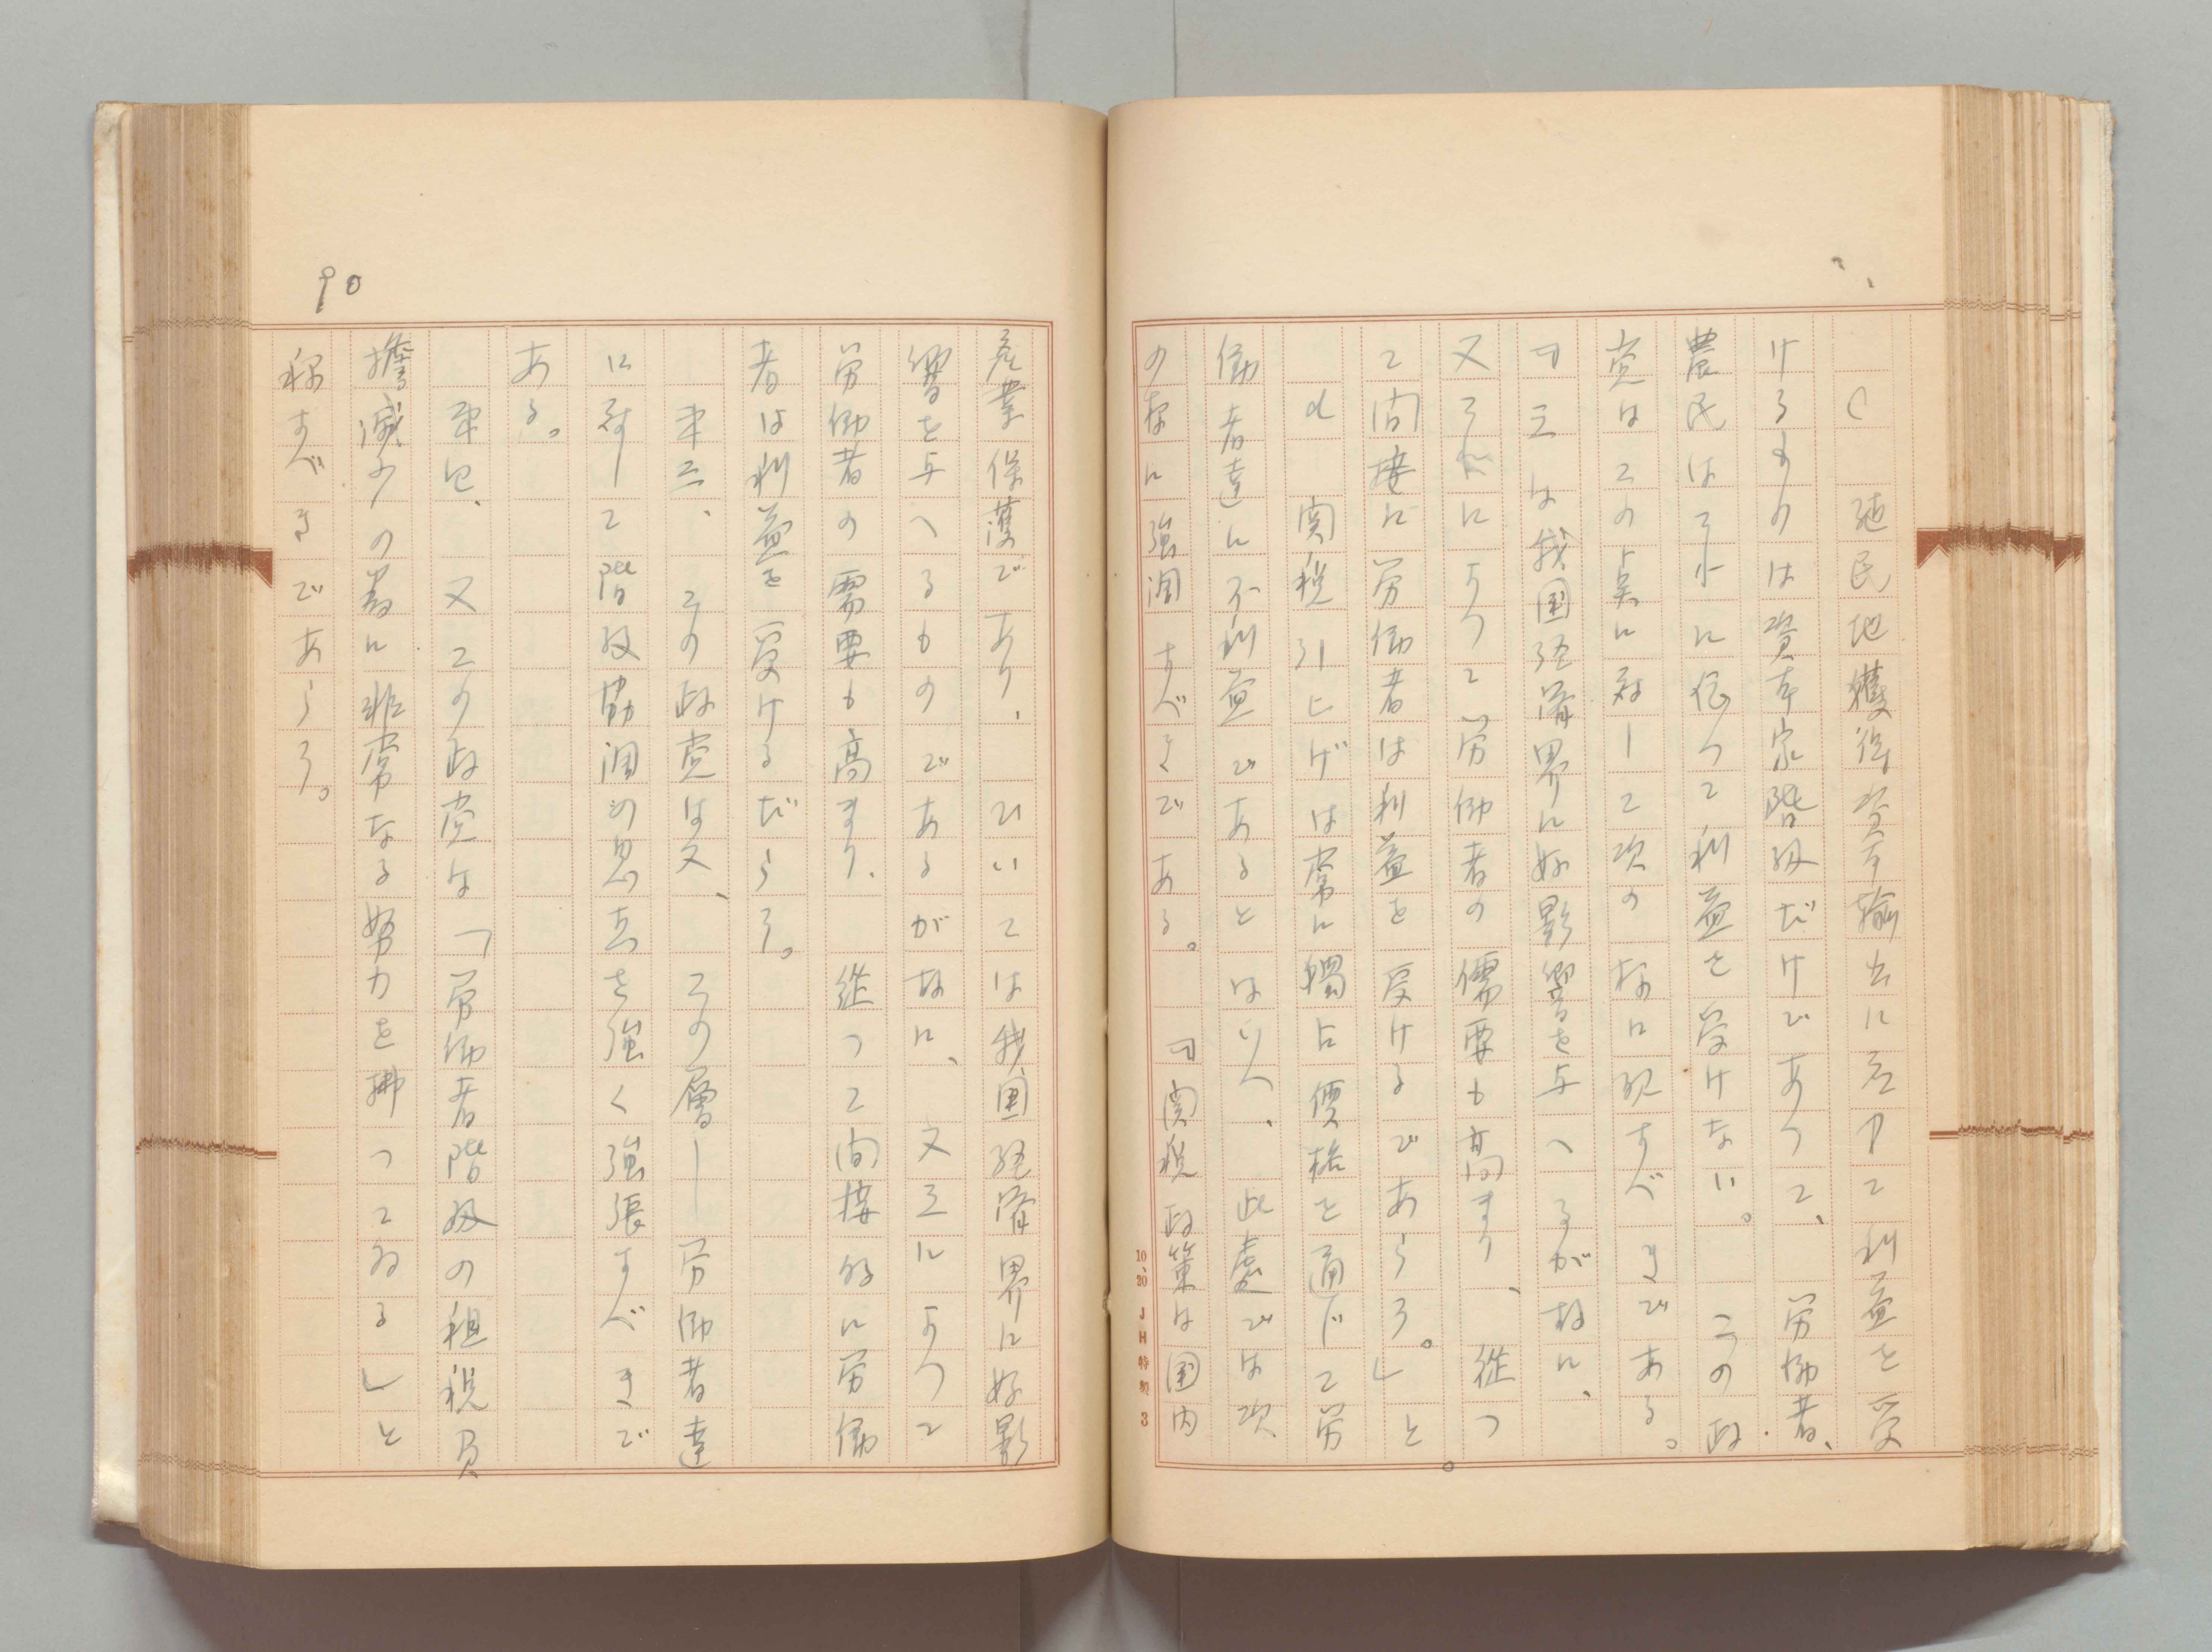 C 殖民地獲得資本輸出に於て利益を受
けるものは資本家階級だけであつて、労働者、
農民はそれに依つて利益を受けない。この政
党はこの点に対して次の様に説すべきである。
『云は我国経済界に好影響を与へるが故に、
又それによつて労働者の需要も高まり、従つ
て間接に労働者は利益を受けるであらう。』と。
d 関税引上げは常に独占価格を通じて労
働者達に不利益であるとは云へ、此處では次
の様に強調すべきである。『関税政策は国内
産業保護であり、ひいては我国経済界に好影
響を与へるものであるが故に、又云によつて
労働者の需要も高まり、従つて間接的に労働
者は利益を受けるだらう。
第三、この政党は又、この層――労働者達
に対して階級協調の思想を強く強張すべきで
ある。
第四、又この政党は「労働者階級の租税負
擔減少の為に非常なる努力を拂つてゐる」と
称すべきであらう。
90
10.20 JH特製 3